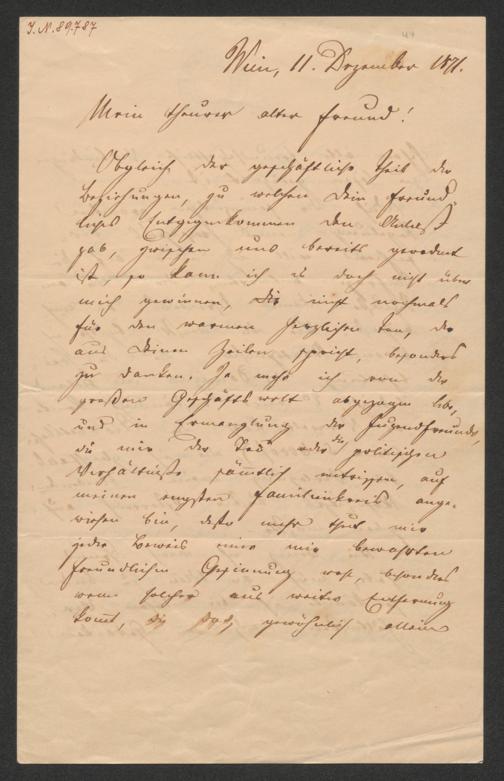 I.N. 89.787
Wien, 11. Dezember 1871.
Mein theurer alter Freund!
Obgleich der geschäftliche Theil der
Beziehungen, zu welchen Dein freund-
liches Entgegenkommen den Anlaß
gab, zwischen uns bereits geordnet
ist, so kann ich es doch nicht über
mich gewinnen, Dir nicht nochmals
für den warmen herzlichen Ton, der
aus Deinen Zeilen spricht, besonders
zu danken. Je mehr ich von der
großen Geschäftswelt abgezogen lebe,
und in Ermanglung der Jugendfreunde,
die mir der Tod oder die politischen
Verhältnisse sämtlich entrissen, auf
meinen engsten Familienkreis ange-
wiesen bin, desto mehr thut mir
jeder Beweis einer mir bewahrten
freundlichen Gesinnung wohl, besonders
wenn solcher aus weiter Entfernung
kommt, die gewöhnlich allein